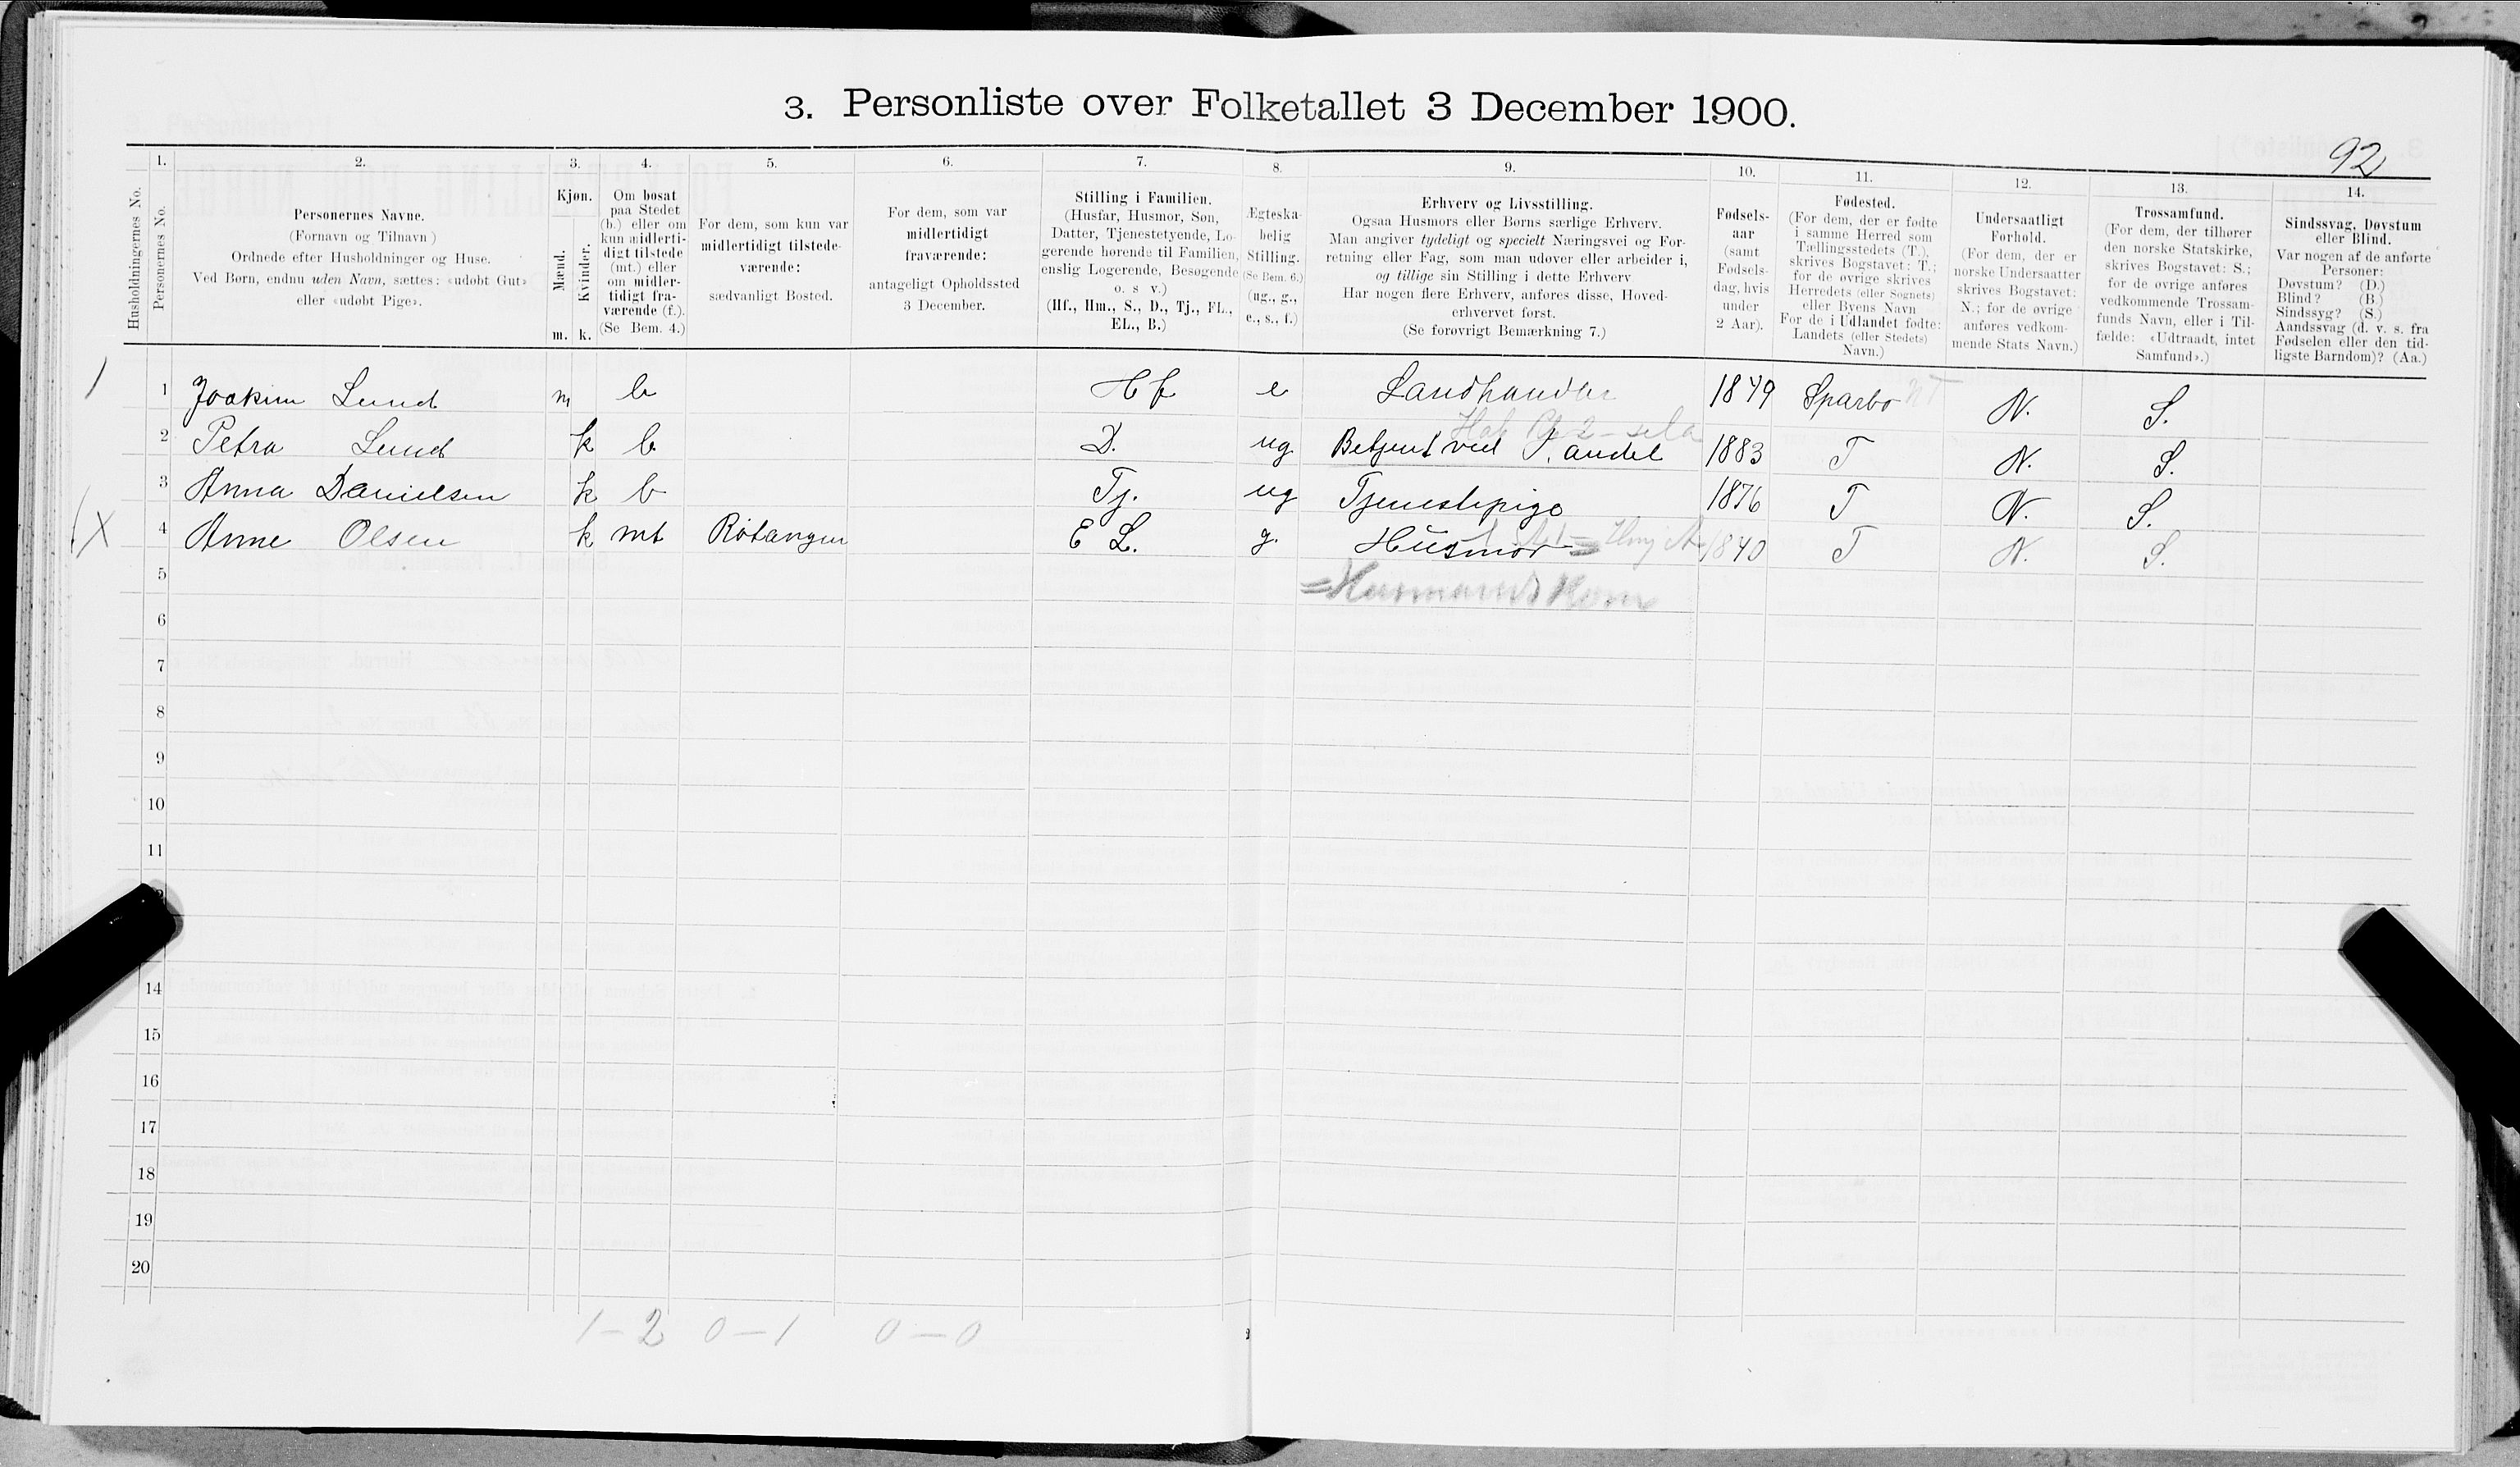 3. Personliste over Folketallet 3 December 1900.
92
Husholdningernes No.
1.
Personernes No.
2.
Personernes Navne.
(Fornavn og Tilnavn)
Ordnede efter Husholdninger og Huse.
Ved Børn, endnu uden Navn, sættes: «udøbt Gut»
eller «udøbt Pige».
3.
Kjøn.
Mænd.
Kvinder.
m. k.
4.
Om bosat
paa Stedet
(b.) eller om
kun midlerti-
digt tilstede
(mt.) eller
om midler-
tidigt fra-
værende (f.).
(Se Bem. 4.)
5.
For dem, som kun var
midlertidigt tilstede-
værende:
sædvanligt Bosted.
6.
For dem, som var
midlertidigt
fraværende:
antageligt Opholdssted
3 December.
7.
Stilling i Familien.
(Husfar, Husmor, Søn,
Datter, Tjenestetyende, Lo-
gerende hørende til Familien,
enslig Logerende, Besøgende
o. s v.)
(Hf., Hm., S., D., Tj., FL.,
EL., B.)
8.
Ægteska-
belig
Stilling.
(Se Bem. 6.)
(ug., g.,
e., s., f.)
9.
Erhverv og Livsstilling.
Ogsaa Husmors eller Børns særlige Erhverv.
Man angiver tydeligt og specielt Næringsvei og For-
retning eller Fag, som man udøver eller arbeider i,
og tillige sin Stilling i dette Erhverv
Har nogen flere Erhverv, anføres disse, Hoved-
erhvervet først.
(Se forøvrigt Bemærkning 7.)
10.
Fødsels-
aar
(samt
Fødsels-
dag, hvis
under
2 Aar).
11.
Fødested.
(For dem, der er fødte
i samme Herred som
Tællingsstedets (T.),
skrives Bogstavet: T.;
for de øvrige skrives
Herredets (eller Sognets)
eller Byens Navn
For de i Udlandet fødte:
Landets (eller Stedets)
Navn.)
12.
Undersaatligt
Forhold.
(For dem, der er
norske Undersaatter
skrives Bogstavet:
N.; for de øvrige
anføres vedkom-
mende Stats Navn.)
13.
Trossamfund.
(For dem, der tilhører
den norske Statskirke,
skrives Bogstavet: S.;
for de øvrige anføres
vedkommende Trossam-
funds Navn, eller i Til-
fælde: «Udtraadt, intet
Samfund».)
14.
Sindssvag, Døvstum
eller Blind.
Var nogen af de anførte
Personer:
Døvstum? (D.)
Blind? (B.)
Sindssyg? (S.)
Aandssvag (d. v. s. fra
Fødselen eller den tid-
ligste Barndom)? (Aa.)
1 Joakim Lund m b Hf e Landhandler 1849 Sparbo NT N. S.
2 Petra Lund k b. D. ug Betjent ved L.andel 1883 T N. S.
3 Anna Danielsen k b Tj. ug Tjenestepige 1876 T N. S.
X 4 Anne Olsen k mt Røtangen E L. g. Husmor 1840 T N. S.
5 = Husmands Kone
6
7
8
9
10
11
14
15
16
17
18
19
20
1 - 2 0 - 1 0 - 0